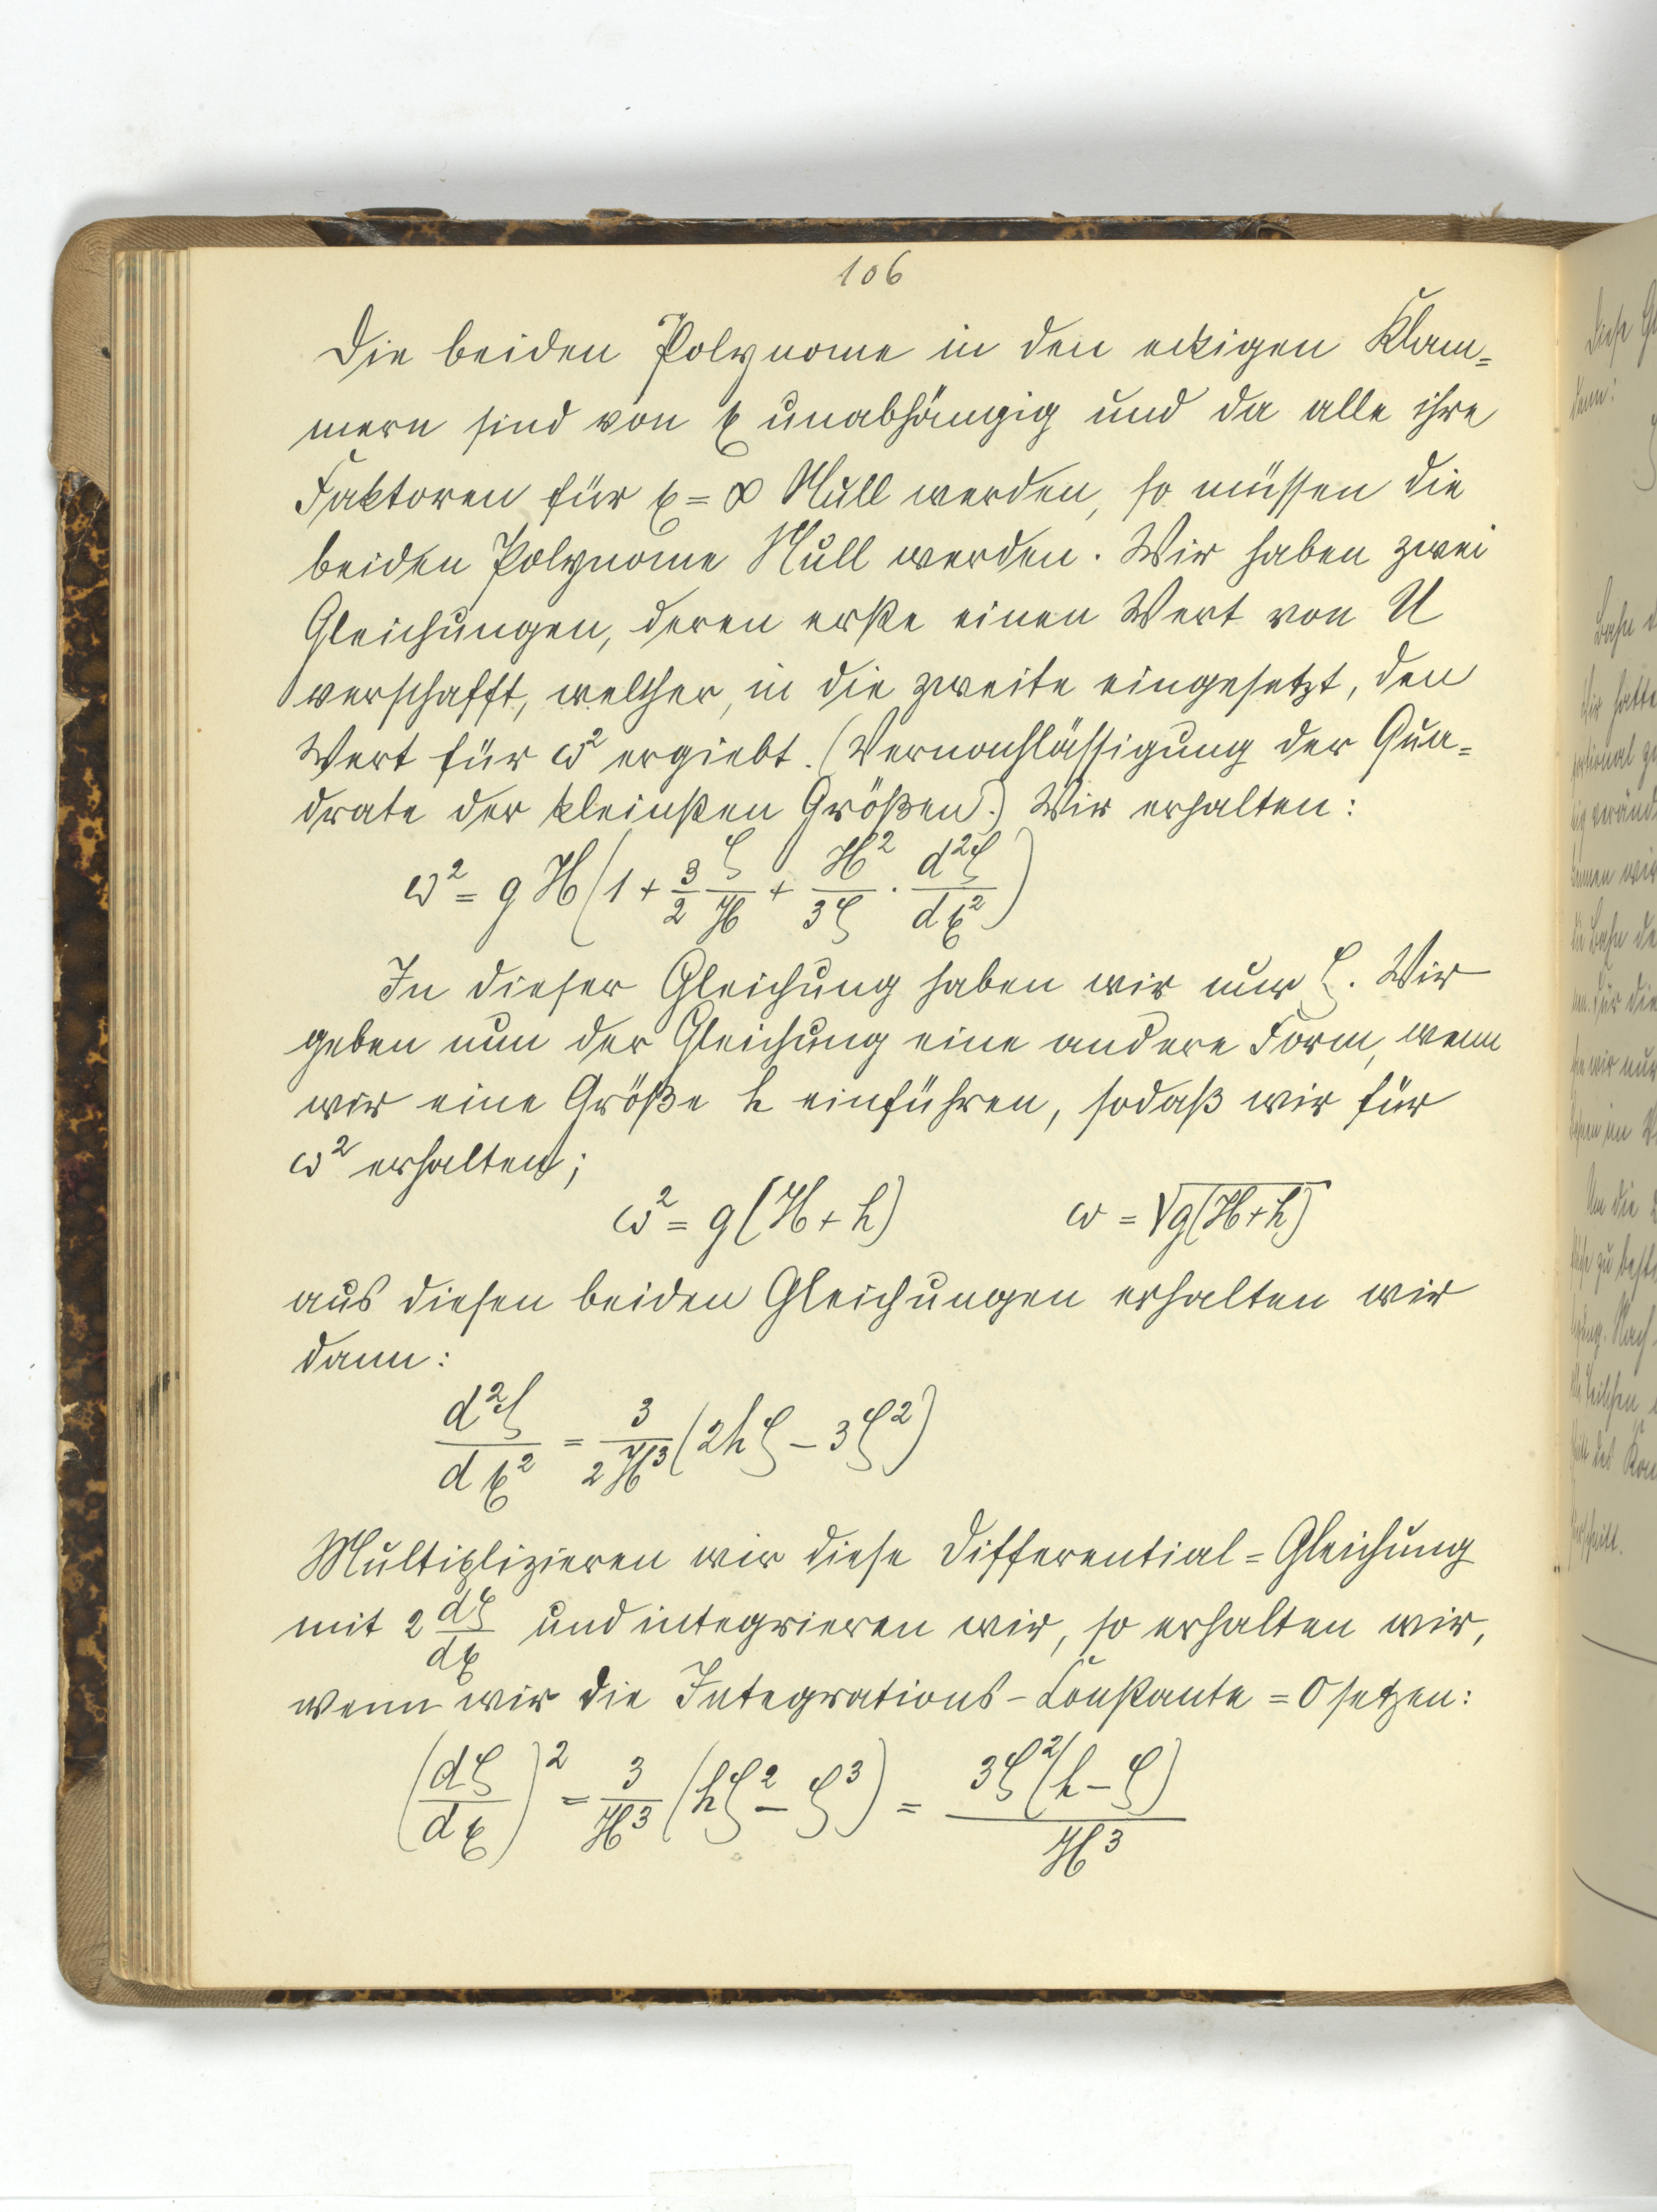 106
Die beiden Polynome in den eckigen Klam=
mern sind von ξ unabhängig und da alle ihre
Faktoren für ξ = ∞ Null werden, so müssen die
beiden Polynome Null werden. Wir haben zwei
Gleichungen, deren erste einen Wert von U
verschafft, welcher, in die zweite eingesetzt, den
Wert für ω² ergiebt. (Vernachlässigung der Qua=
drate der kleinsten Größen.) Wir erhalten:
ω² = gH(1 + 3/2 ζ/H + H²/3ζ · d²ζ/dξ²)
In dieser Gleichung haben wir nur ζ. Wir
geben nun der Gleichung eine andere Form, wenn
wir eine Größe h einführen, sodaß wir für
ω² erhalten;
ω² = g(H + h) ω = √g(H+h)
aus diesen beiden Gleichungen erhalten wir
dann:
d²ζ/dξ² = 3/2H³ (2hζ – 3ζ²)
Multiplizieren wir diese Differential=Gleichung
mit 2 dζ/dξ und integrieren wir, so erhalten wir,
wenn wir die Integrations-Constante = 0 setzen:
(dζ/dξ)² = 3/H³ (hζ² – ζ³) = 3ζ²(h – ζ)/H³